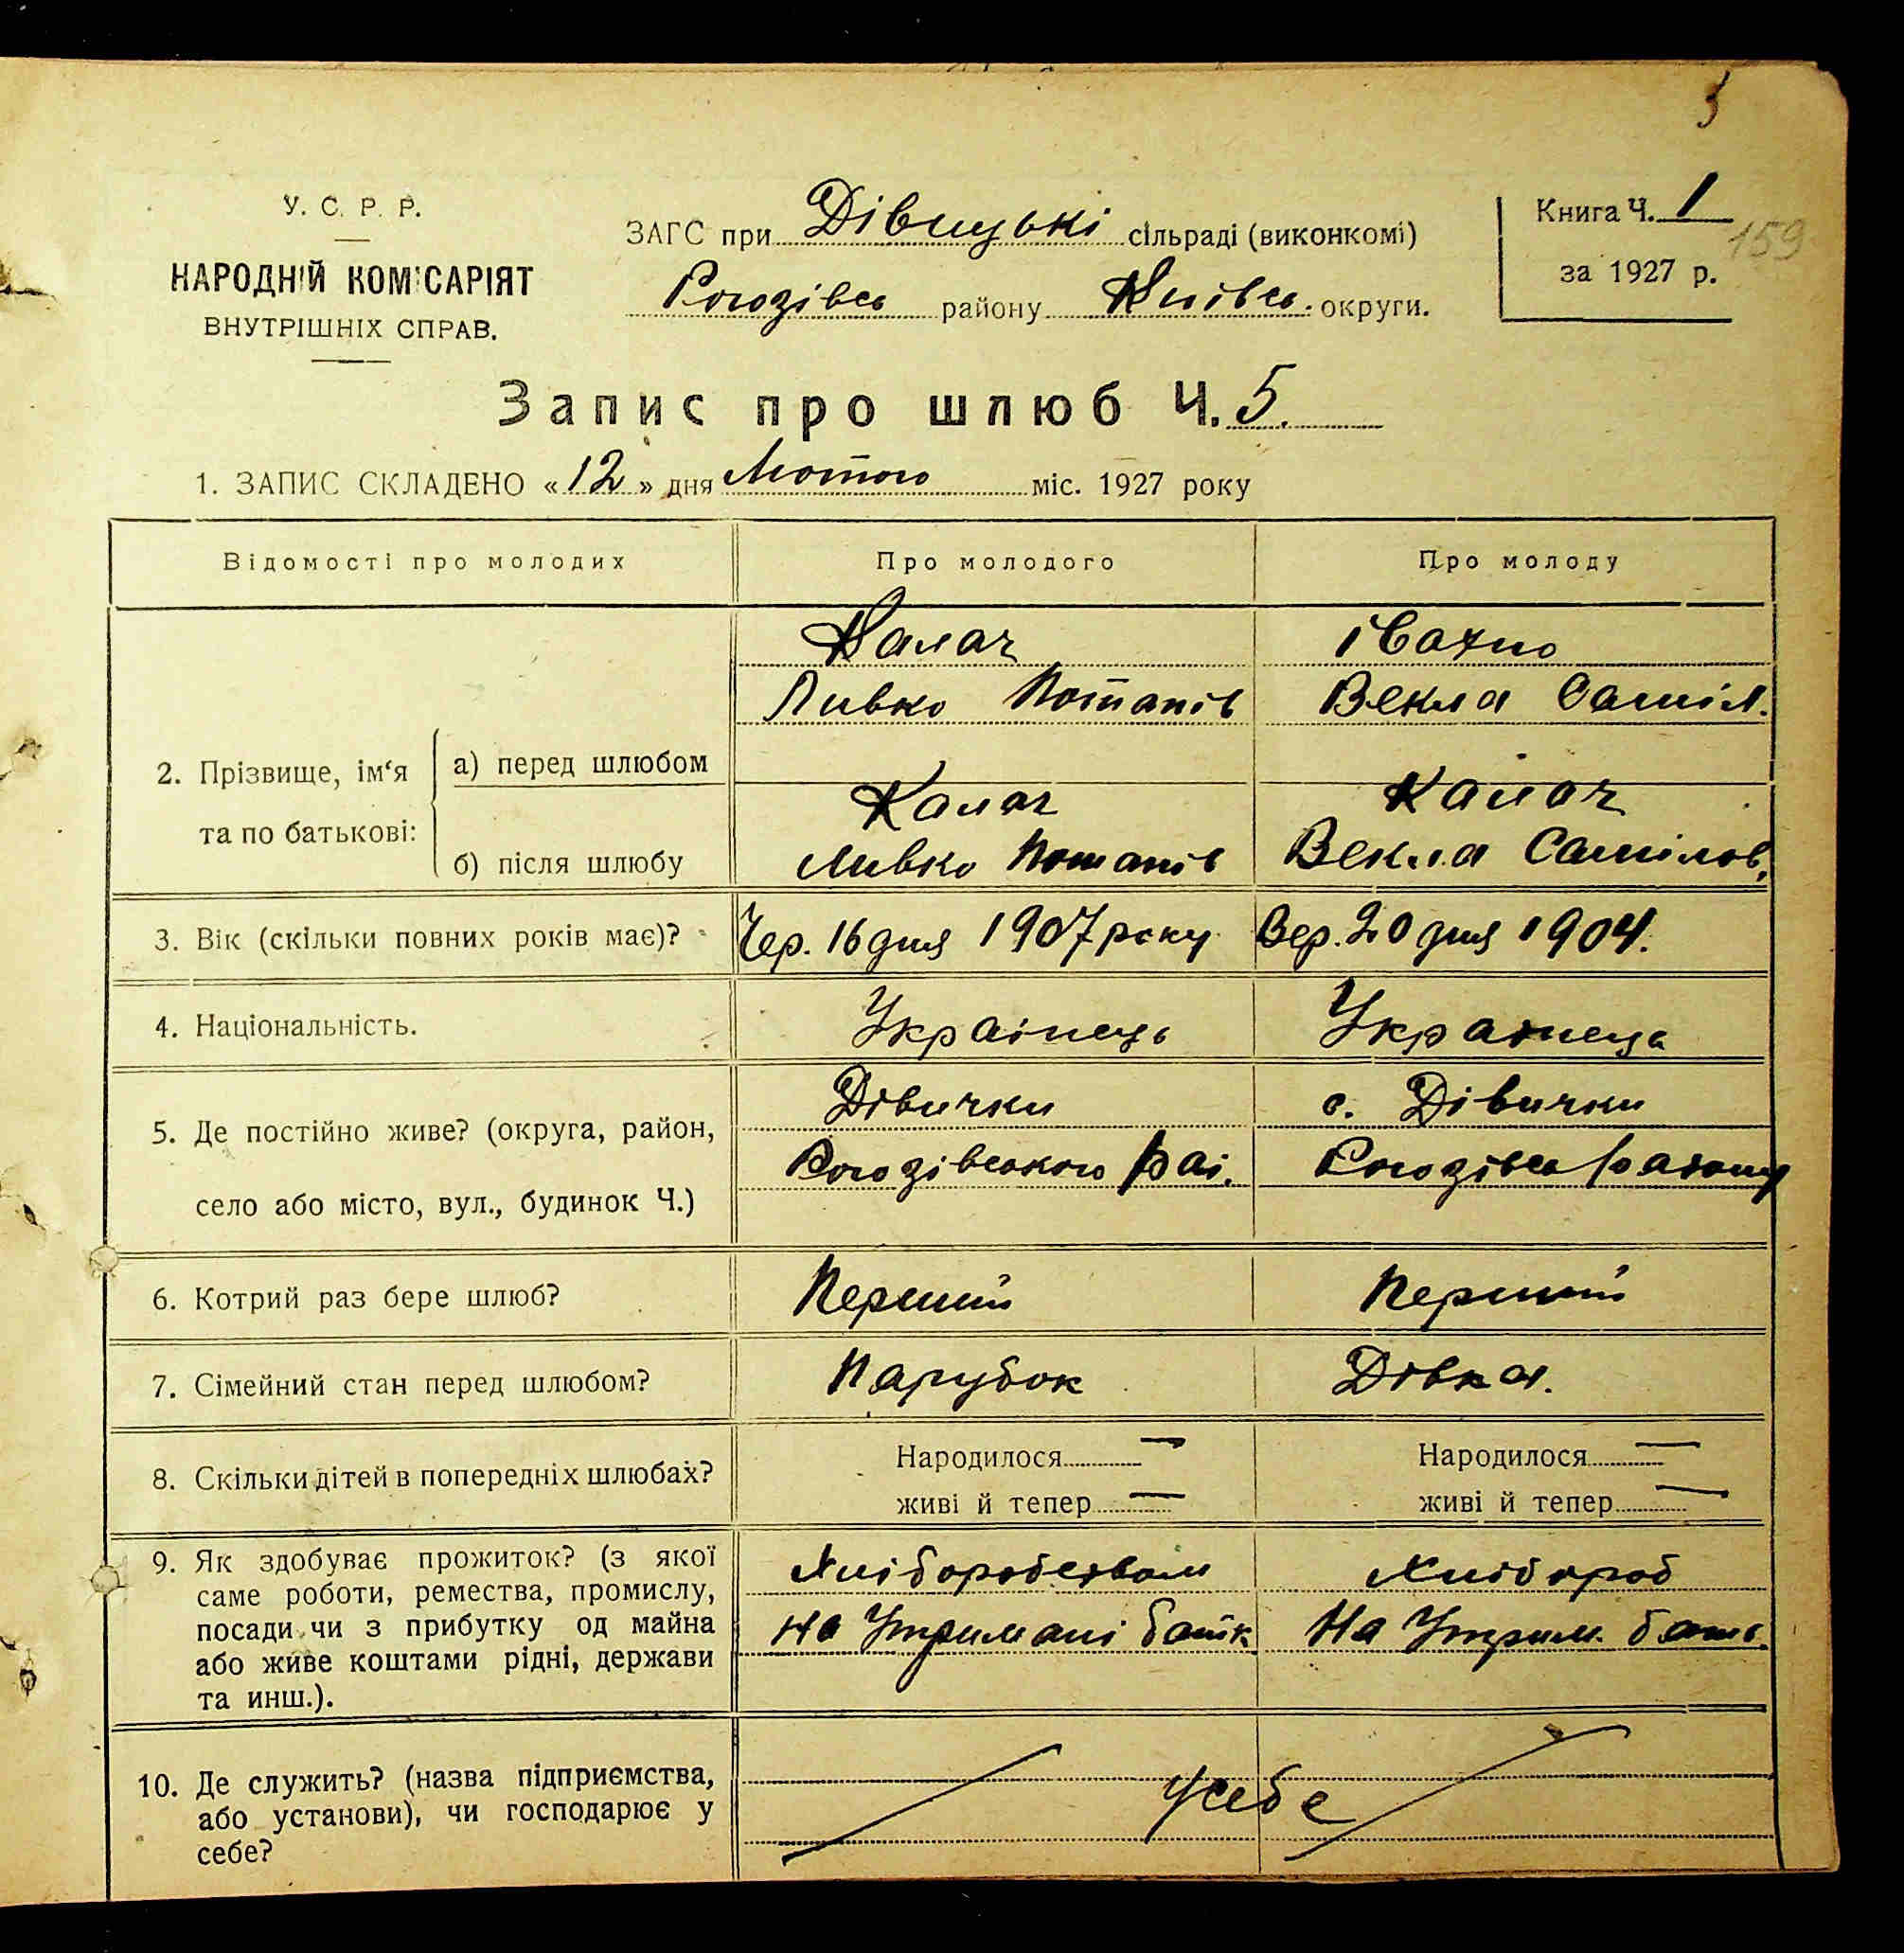 У. С. Р. Р.
НАРОДНІЙ КОМІСАРІЯТ
ВНУТРІШНІХ СПРАВ.
ЗАГС при Дівицькі сільраді (виконкомі)
Рогозівсь району Київсь. округи.
Книга Ч. 1
159
за 1927 р.
Запис про шлюб Ч. 5.
1. ЗАПИС СКЛАДЕНО «12» дня Лютого міс. 1927 року
Відомості про молодих
Про молодого
Про молоду
2. Прізвище, ім‘я та по батькові:
а) перед шлюбом
Калач
Ливко Потапів
івахно
Векла Саміл.
б) після шлюбу
Калач
Ливко Потапів
Калач
Векла Самілов.
3. Вік (скільки повних років має)?
Чер. 16 дня 1907 року
Вер. 20 дня 1904.
4. Національність.
Українець
Українець
5. Де постійно живе? (округа, район,
село або місто, вул., будинок Ч.)
Дівички
Рогозівського раі.
с. Дівички
Рогозівсь раіону
6. Котрий раз бере шлюб?
Перший
Перший
7. Сімейний стан перед шлюбом?
Парубок
Дівка.
8. Скільки дітей в попередніх шлюбах?
Народилося —
живі й тепер —
Народилося —
живі й тепер —
9. Як здобуває прожиток? (з якої
саме роботи, ремества, промислу,
посади чи з прибутку од майна
або живе коштами рідні, держави
та инш.).
Хліборобствам
На Утримані батьк
Хлібороб
На Утрим. бать.
10. Де служить? (назва підприємства,
або установи), чи господарює у
себе?
усебе